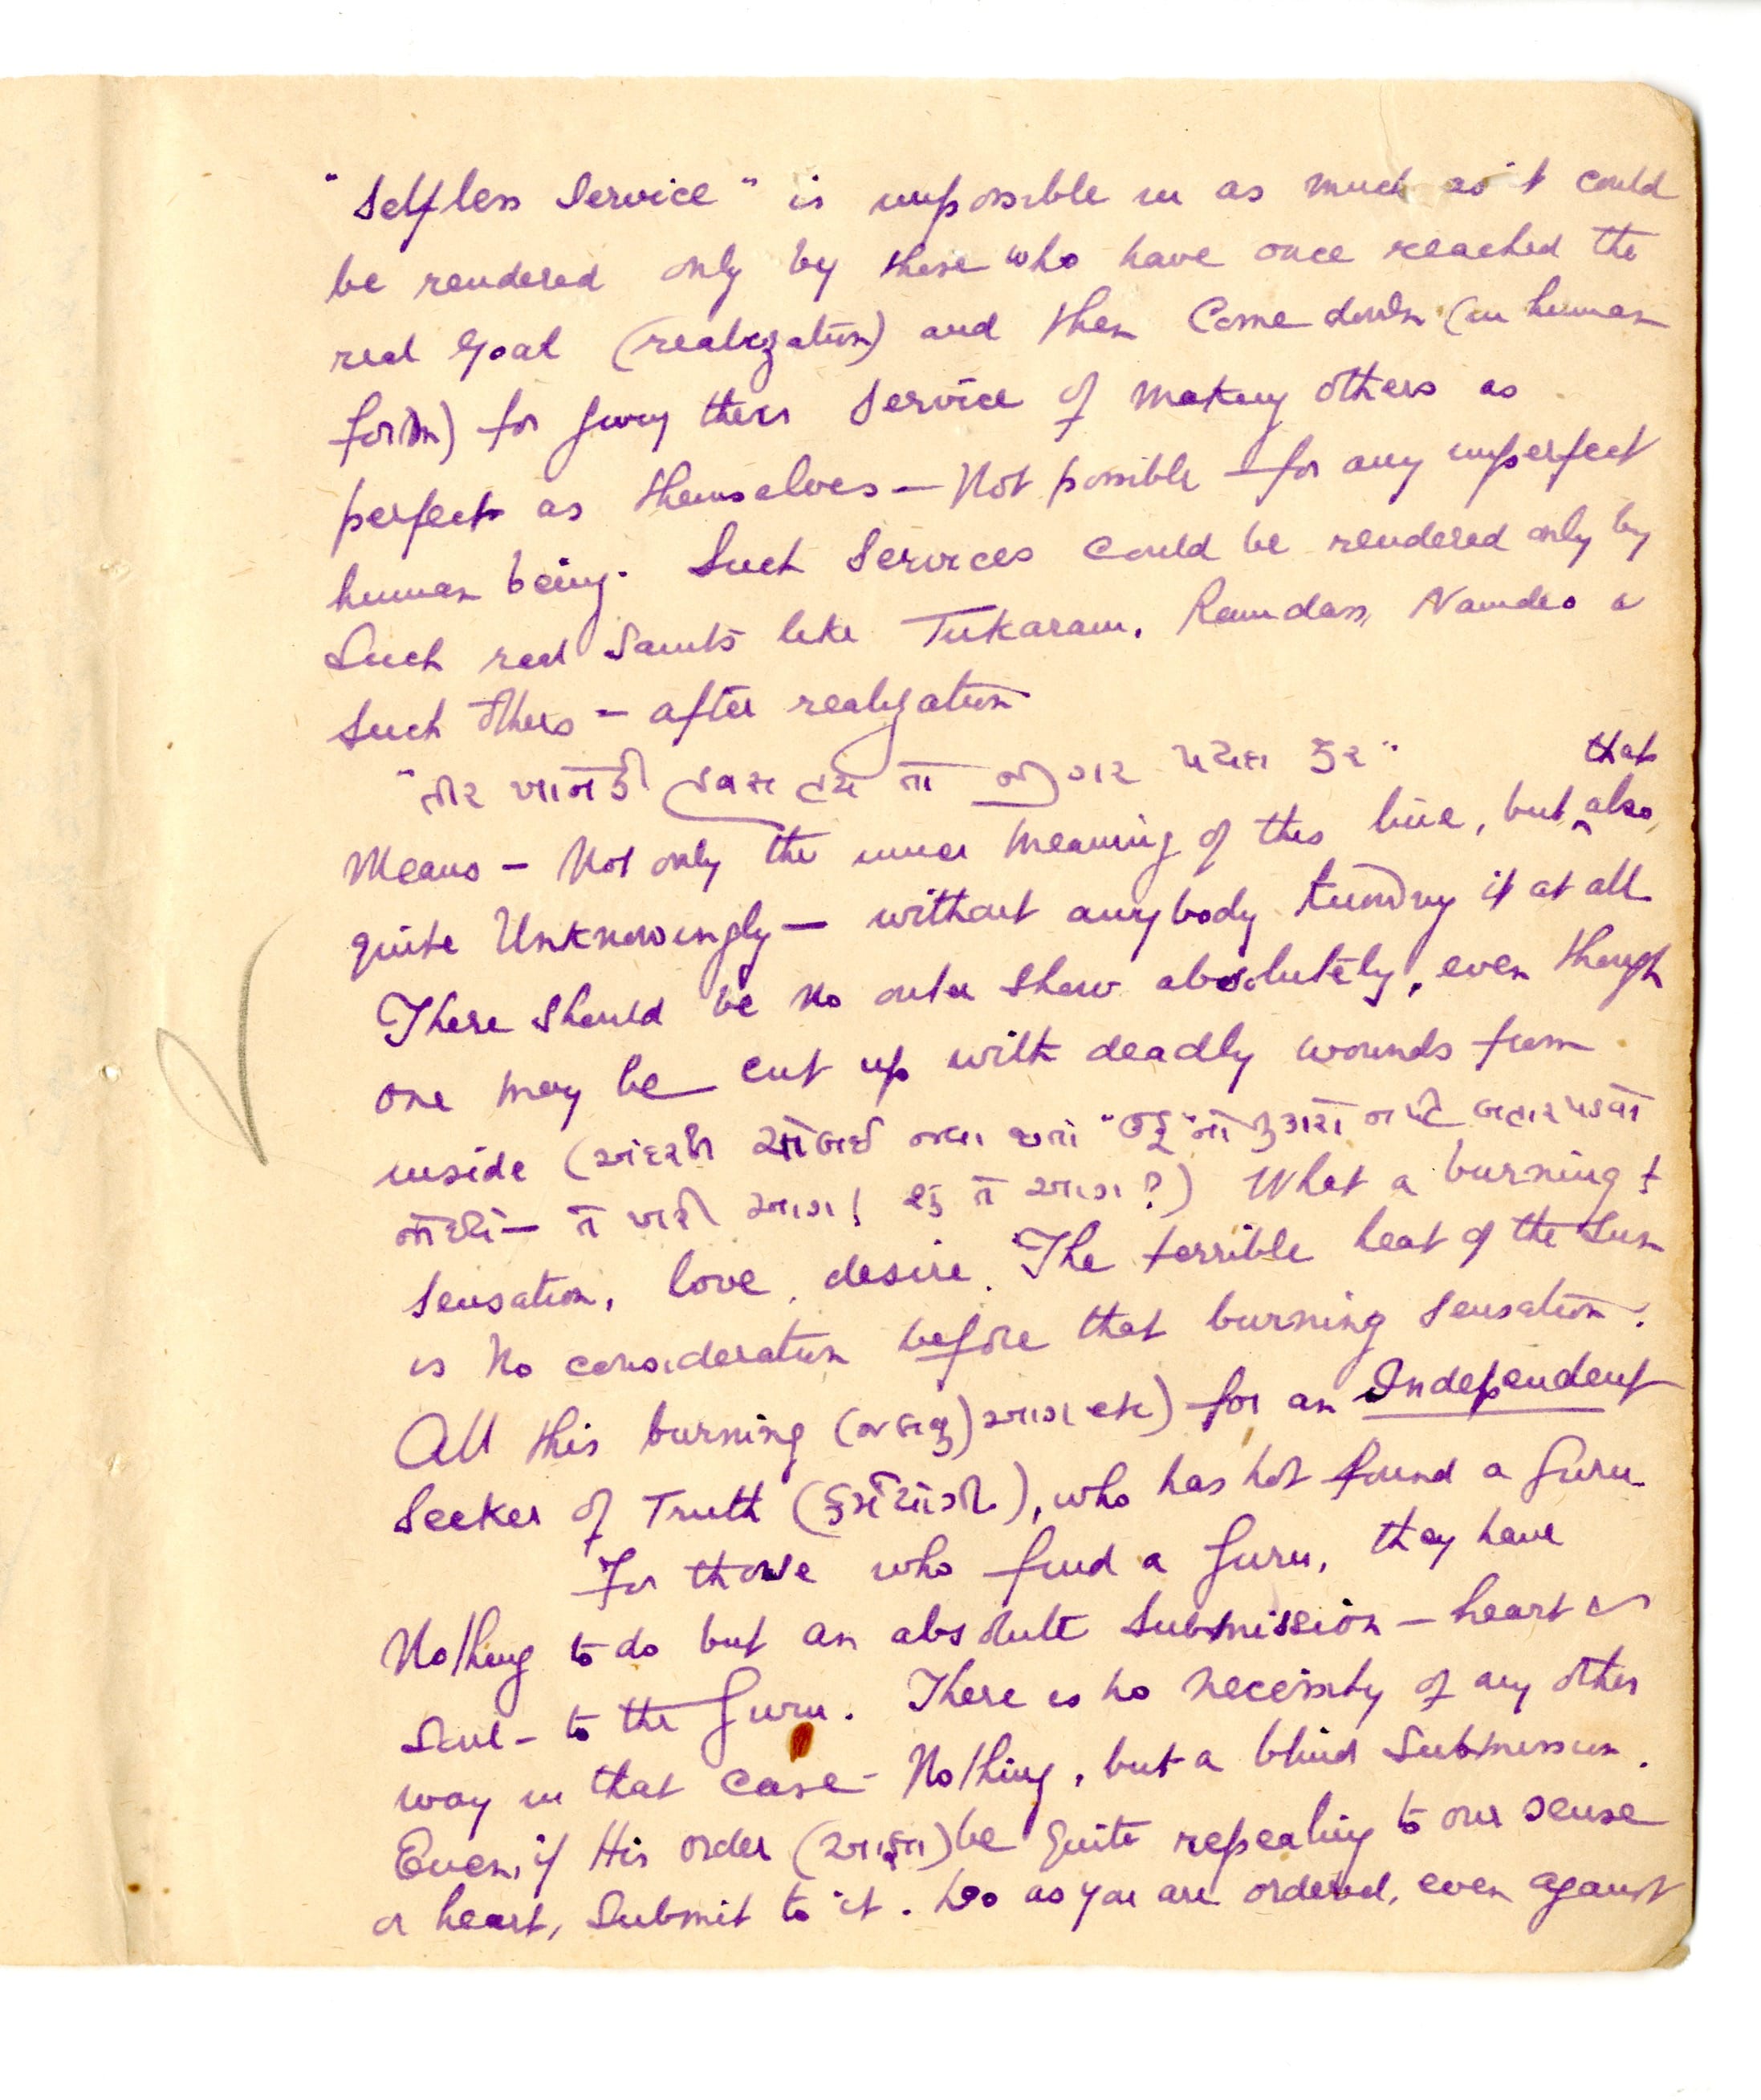 "Selfless Service" is impossible in as much as it could
be rendered only by those who have once reached the
real Goal (realization) and then Come down (in human
form) for giving their Service of making others as
perfect as themselves — Not possible — for any imperfect
human being. Such Services could be rendered only by
Such real Saints like Tukaram, Ramdass, Namdeo &
Such others — after realization
that
Means — Not only the inner meaning of this line, but also,
quite Unknowingly — without anybody knowing it at all
There should be no outer show absolutely, even though
one may be cut up with deadly wounds from
inside ( "હું"
?) What a burning
Sensation, love, desire. The terrible heat of the Sun
is No consideration before that burning Sensation.
All this burning ( etc) for an Independent
Seeker of Truth ( ), who has not found a Guru
For those who find a Guru, they have
Nothing to do but an absolute Submission — heart &
Soul — to the Guru. There is no necessity of any other
way in that case — Nothing, but a blind Submission.
Even, if His order ( ) be quite repealing to our sense
or heart, Submit to it. Do as you are ordered, even against